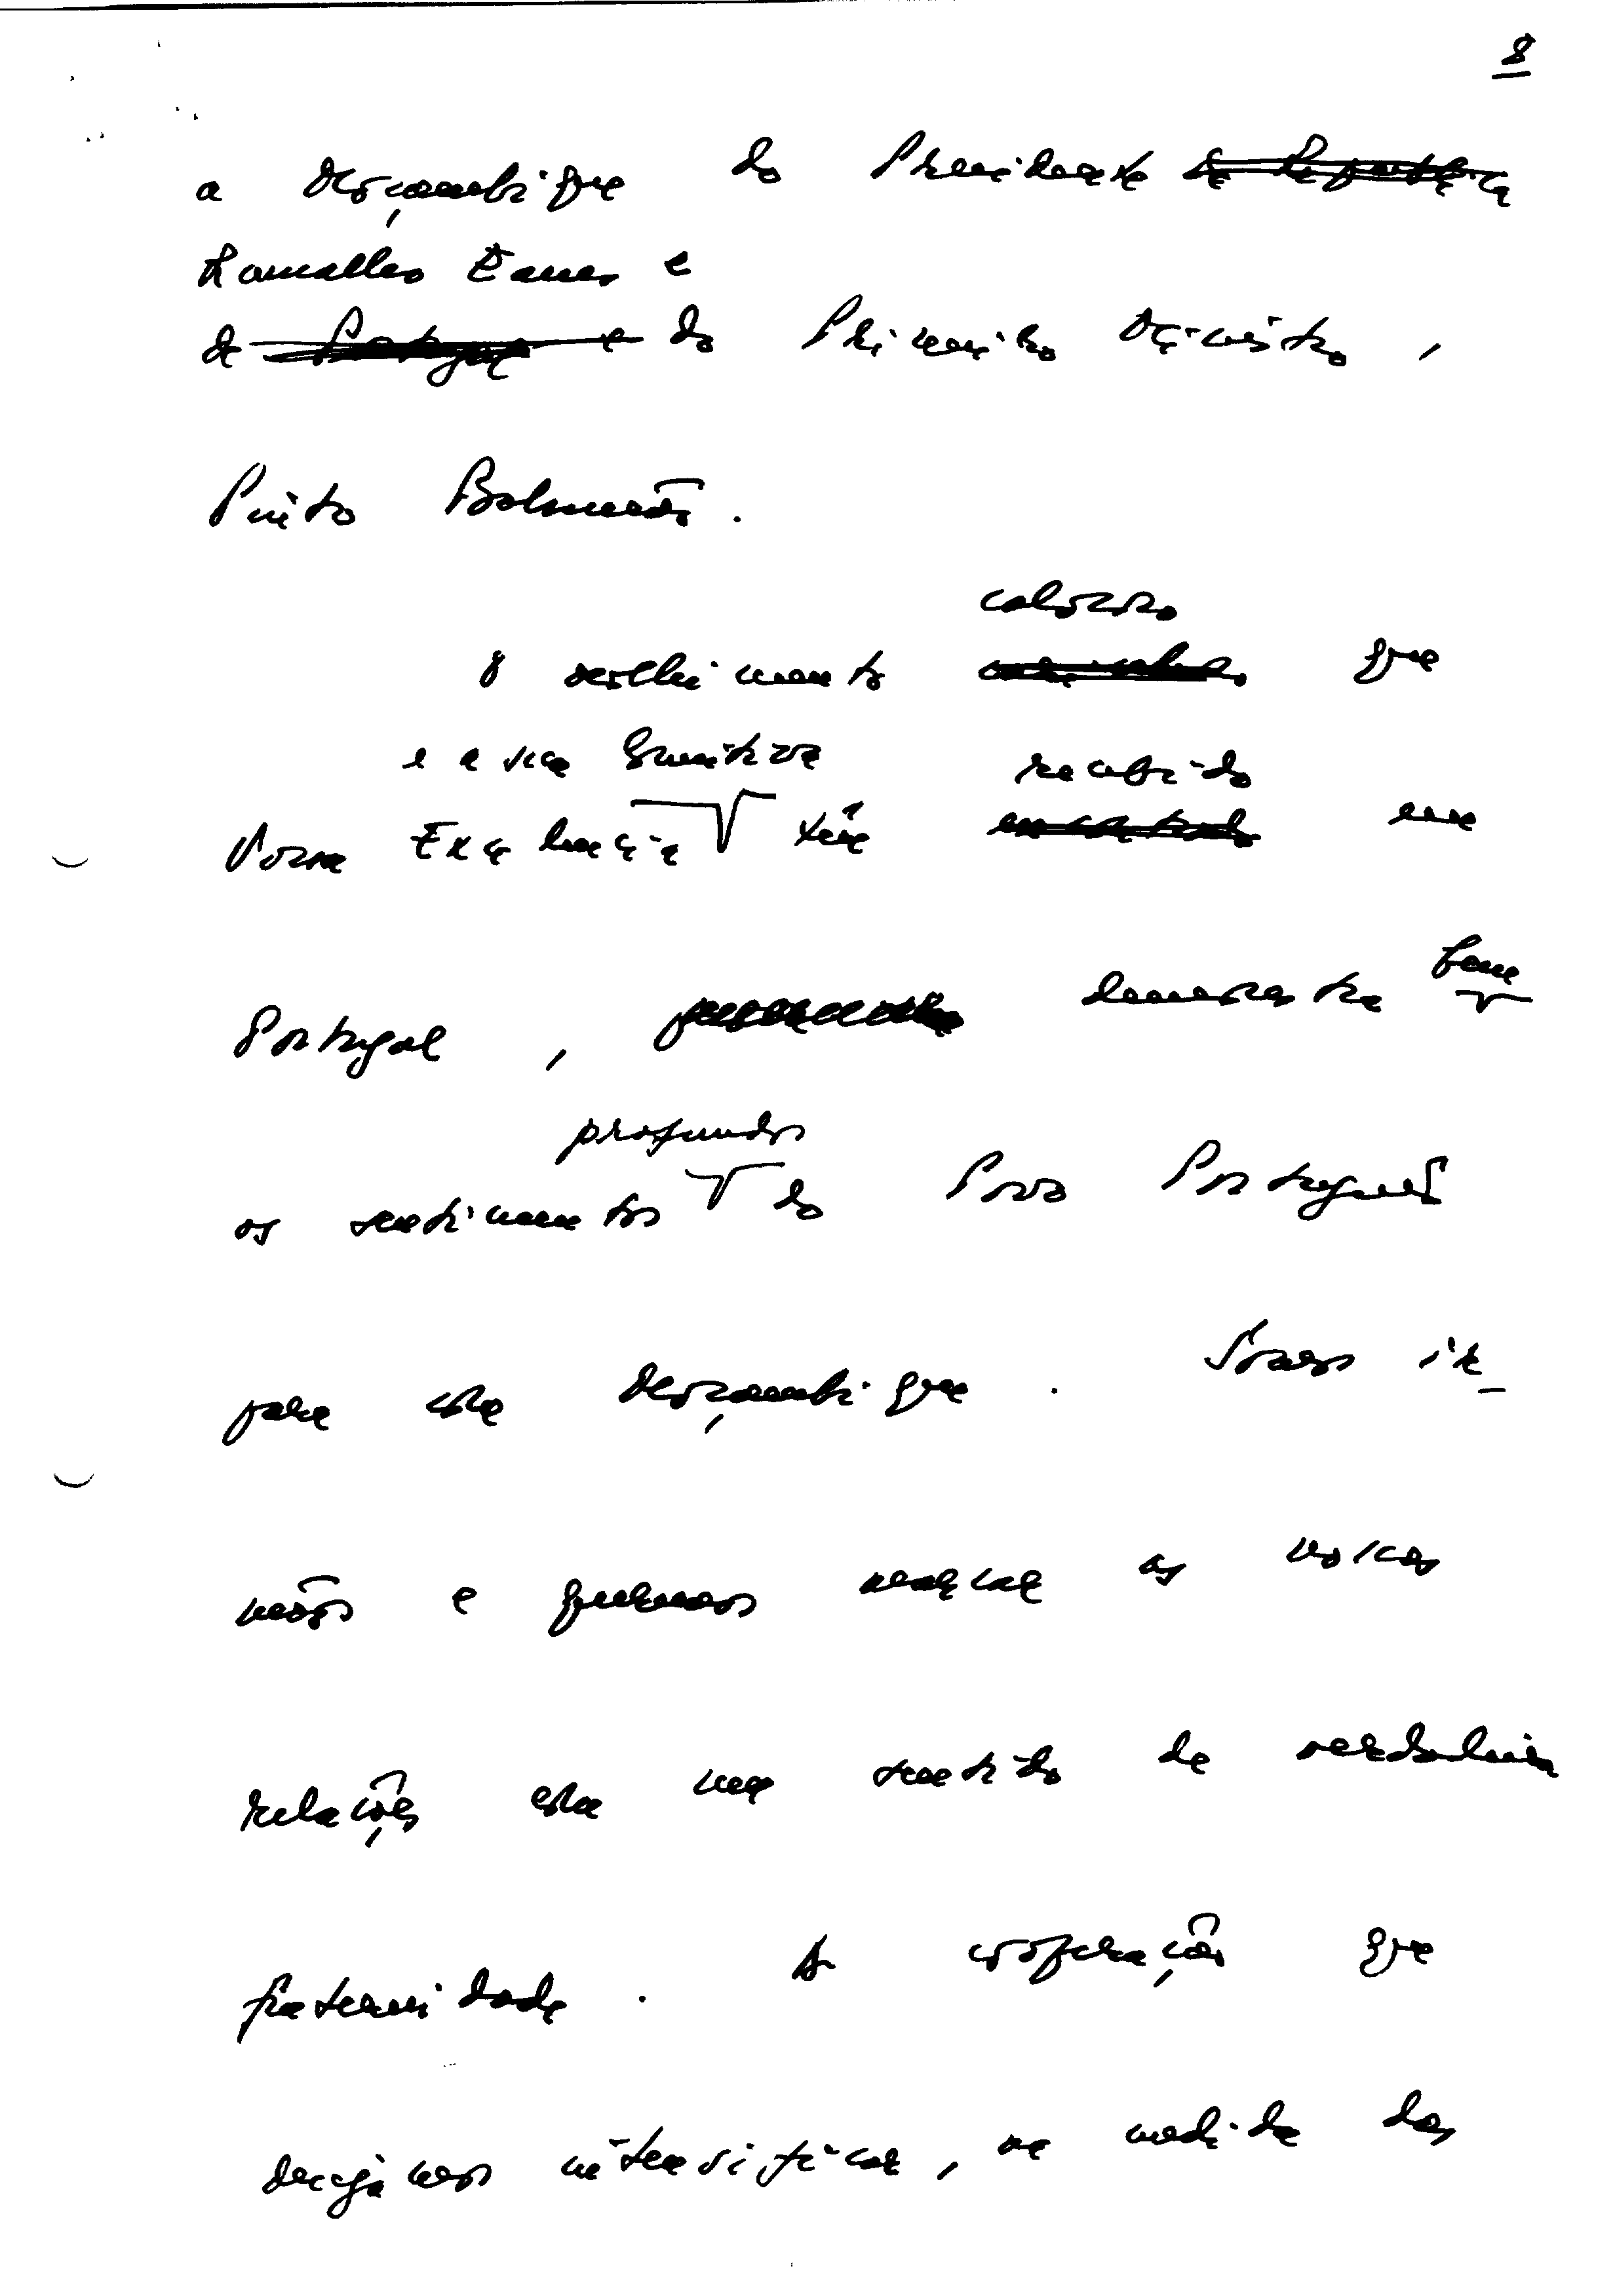 8
a Moçambique do Presidente da República
Ramalho Eanes e
de Portugal e do Primeiro Ministro,
Pinto Balsemão.
caloroso
O acolhimento que
e a sua comitiva recebido
Vossa Excelência têm encontrado em
Portugal, demonstra bem
profundos
os sentimentos do Povo Português
para com Moçambique. Somos ir-
mãos e queremos marcar as nossas
relações com um sentido de verdadeira
fraternidade. A cooperação que
desejamos intensificar, na medida das